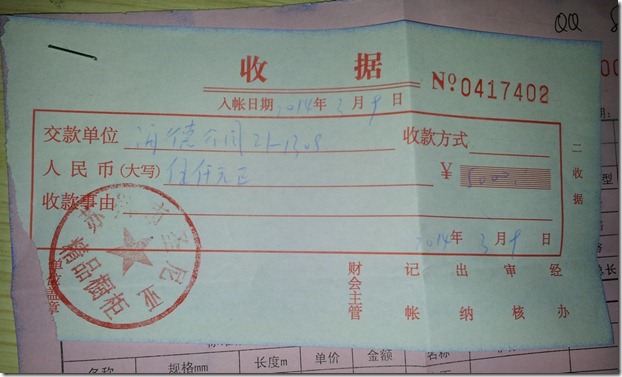 QQ
收 据
Nº 0417402
入帐日期 2014年 3月 9日
交款单位 21-1305 收款方式
人民币(大写) 伍仟元正 ¥ 5000.
收款事由
2014年 3月 9日
二收据
单位盖章
财会主管 记帐 出纳 审核 经办
精品橱柜
名称 规格mm 长度m 单价 金额 名称